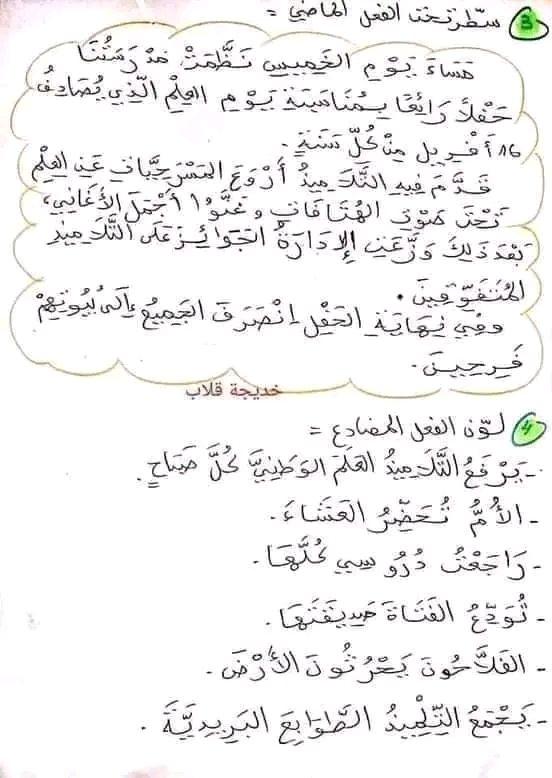 3 سطّر تحت الفعل الماضي =
مَسَاءَ يَوْمِ الخَمِيسِ نَظَّمَتْ مَدْرَسَتُنَا
حَفْلاً رَائِعًا بِمُنَاسَبَةِ يَوْمِ العِلْمِ الَّذِي يُصَادِفُ
16 أَفْرِيل مِنْ كُلِّ سَنَةٍ.
قَدَّمَ فِيهِ التَّلَامِيذُ أَرْوَعَ المَسْرَحِيَّاتِ عَنِ العِلْمِ
تَحْتَ صَوْتِ الهُتَافَاتِ وَغَنَّوْا أَجْمَلَ الأَغَانِي،
بَعْدَ ذَلِكَ وَزَّعَتِ الإِدَارَةُ الجَوَائِزَ عَلَى التَّلَامِيذِ
المُتَفَوِّقِينَ.
وَفِي نِهَايَةِ الحَفْلِ اِنْصَرَفَ الجَمِيعُ إِلَى بُيُوتِهِمْ
فَرِحِينَ.
خديجة قلاب
4 لوّن الفعل المضارع =
- يَرْفَعُ التَّلَامِيذُ العَلَمَ الوَطَنِيَّ كُلَّ صَبَاحٍ.
- الأُمُّ تُحَضِّرُ العَشَاءَ.
- رَاجَعْتُ دُرُوسِي كُلَّهَا.
- تُوَدِّعُ الفَتَاةُ صَدِيقَتَهَا.
- الفَلَّاحُونَ يَحْرُثُونَ الأَرْضَ.
- يَجْمَعُ التِّلْمِيذُ الطَّوَابِعَ البَرِيدِيَّةَ.